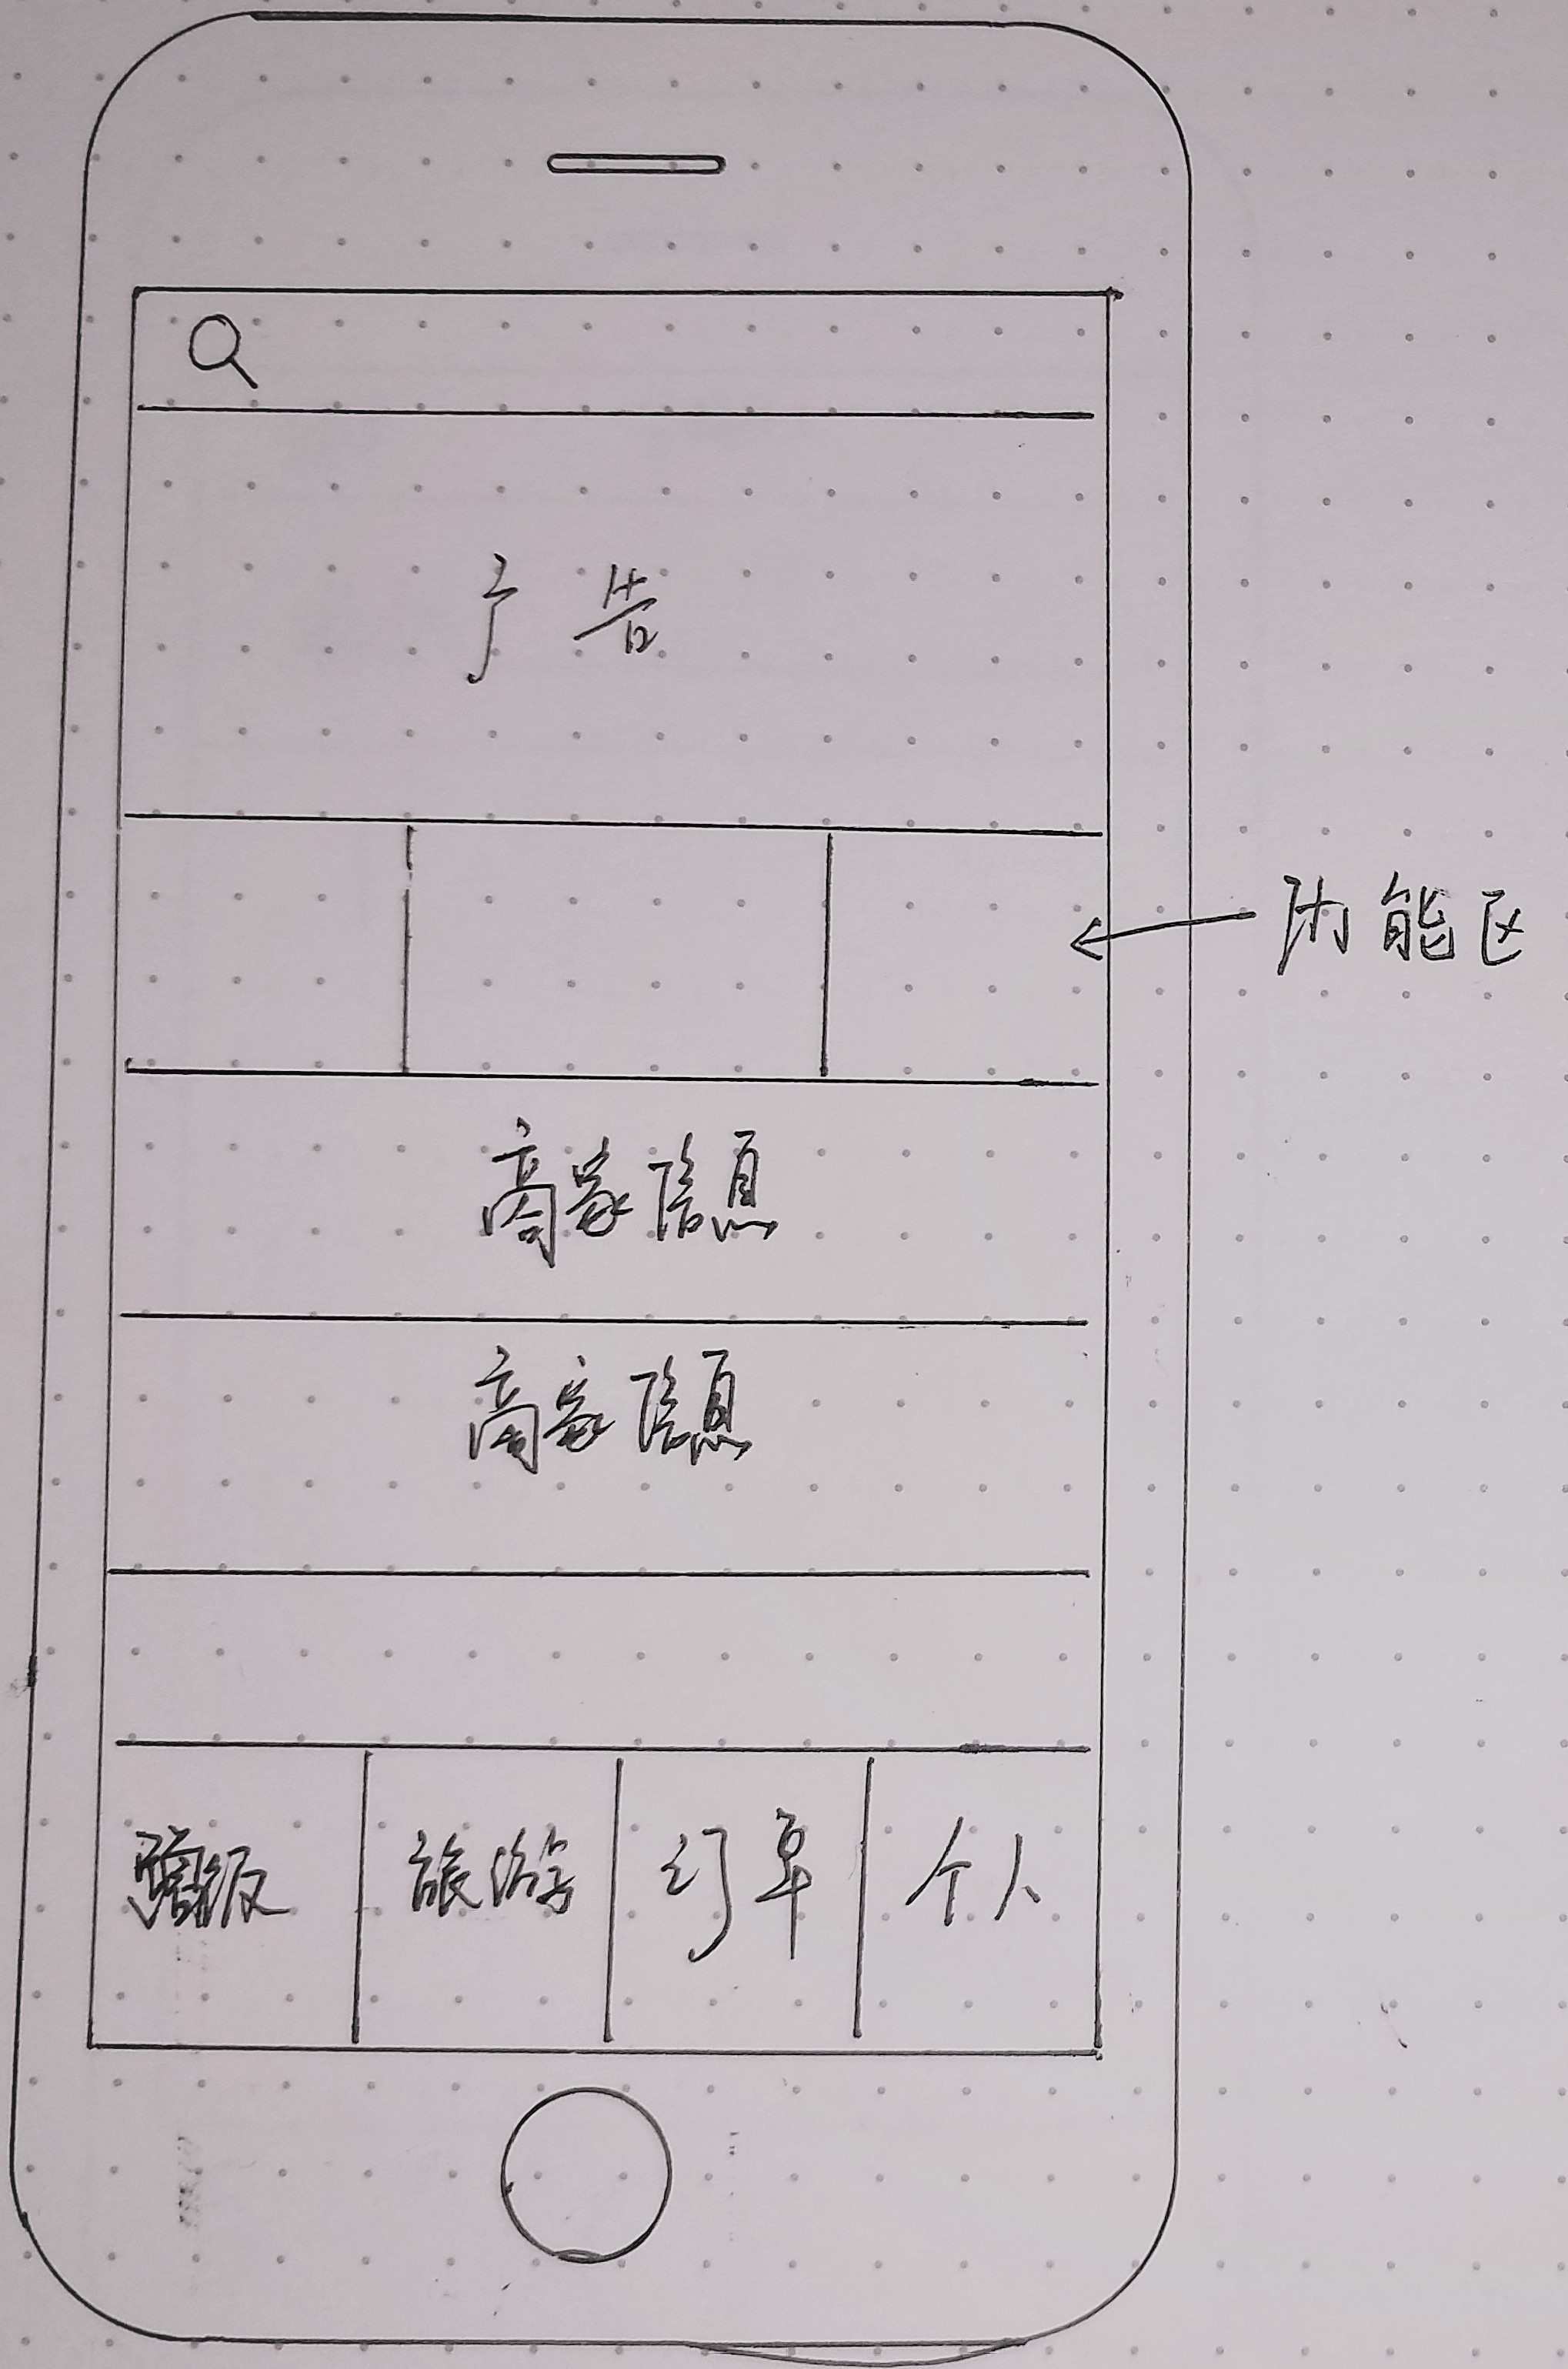 广告
功能区
商家信息
商家信息
旅游
订单
个人